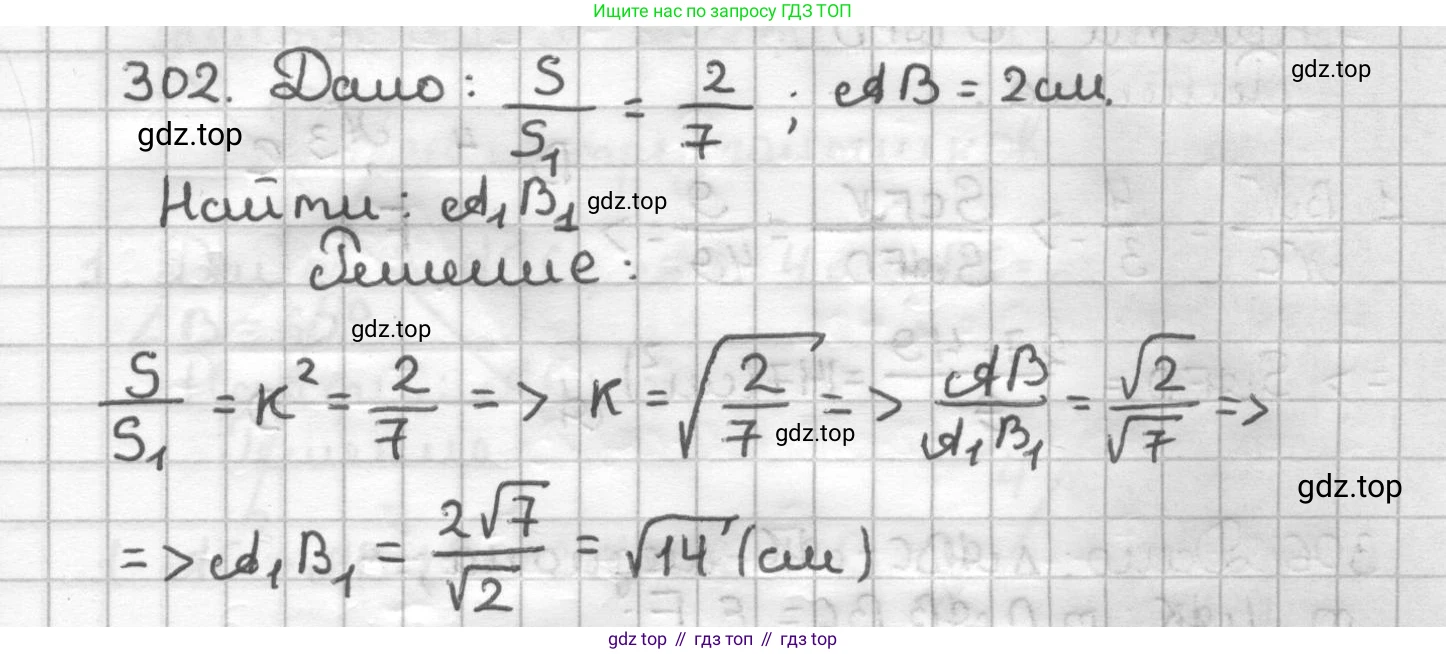 Ищите нас по запросу ГДЗ ТОП
302. Дано: S/S₁ = 2/7; AB = 2см.
gdz.top
gdz.top
Найти: A₁B₁
gdz.top
Решение:
gdz.top
S/S₁ = K² = 2/7 => K = √(2/7) => AB/A₁B₁ = √2/√7 =>
gdz.top
gdz.top
=> A₁B₁ = 2√7/√2 = √14 (см)
gdz top // гдз топ // гдз top